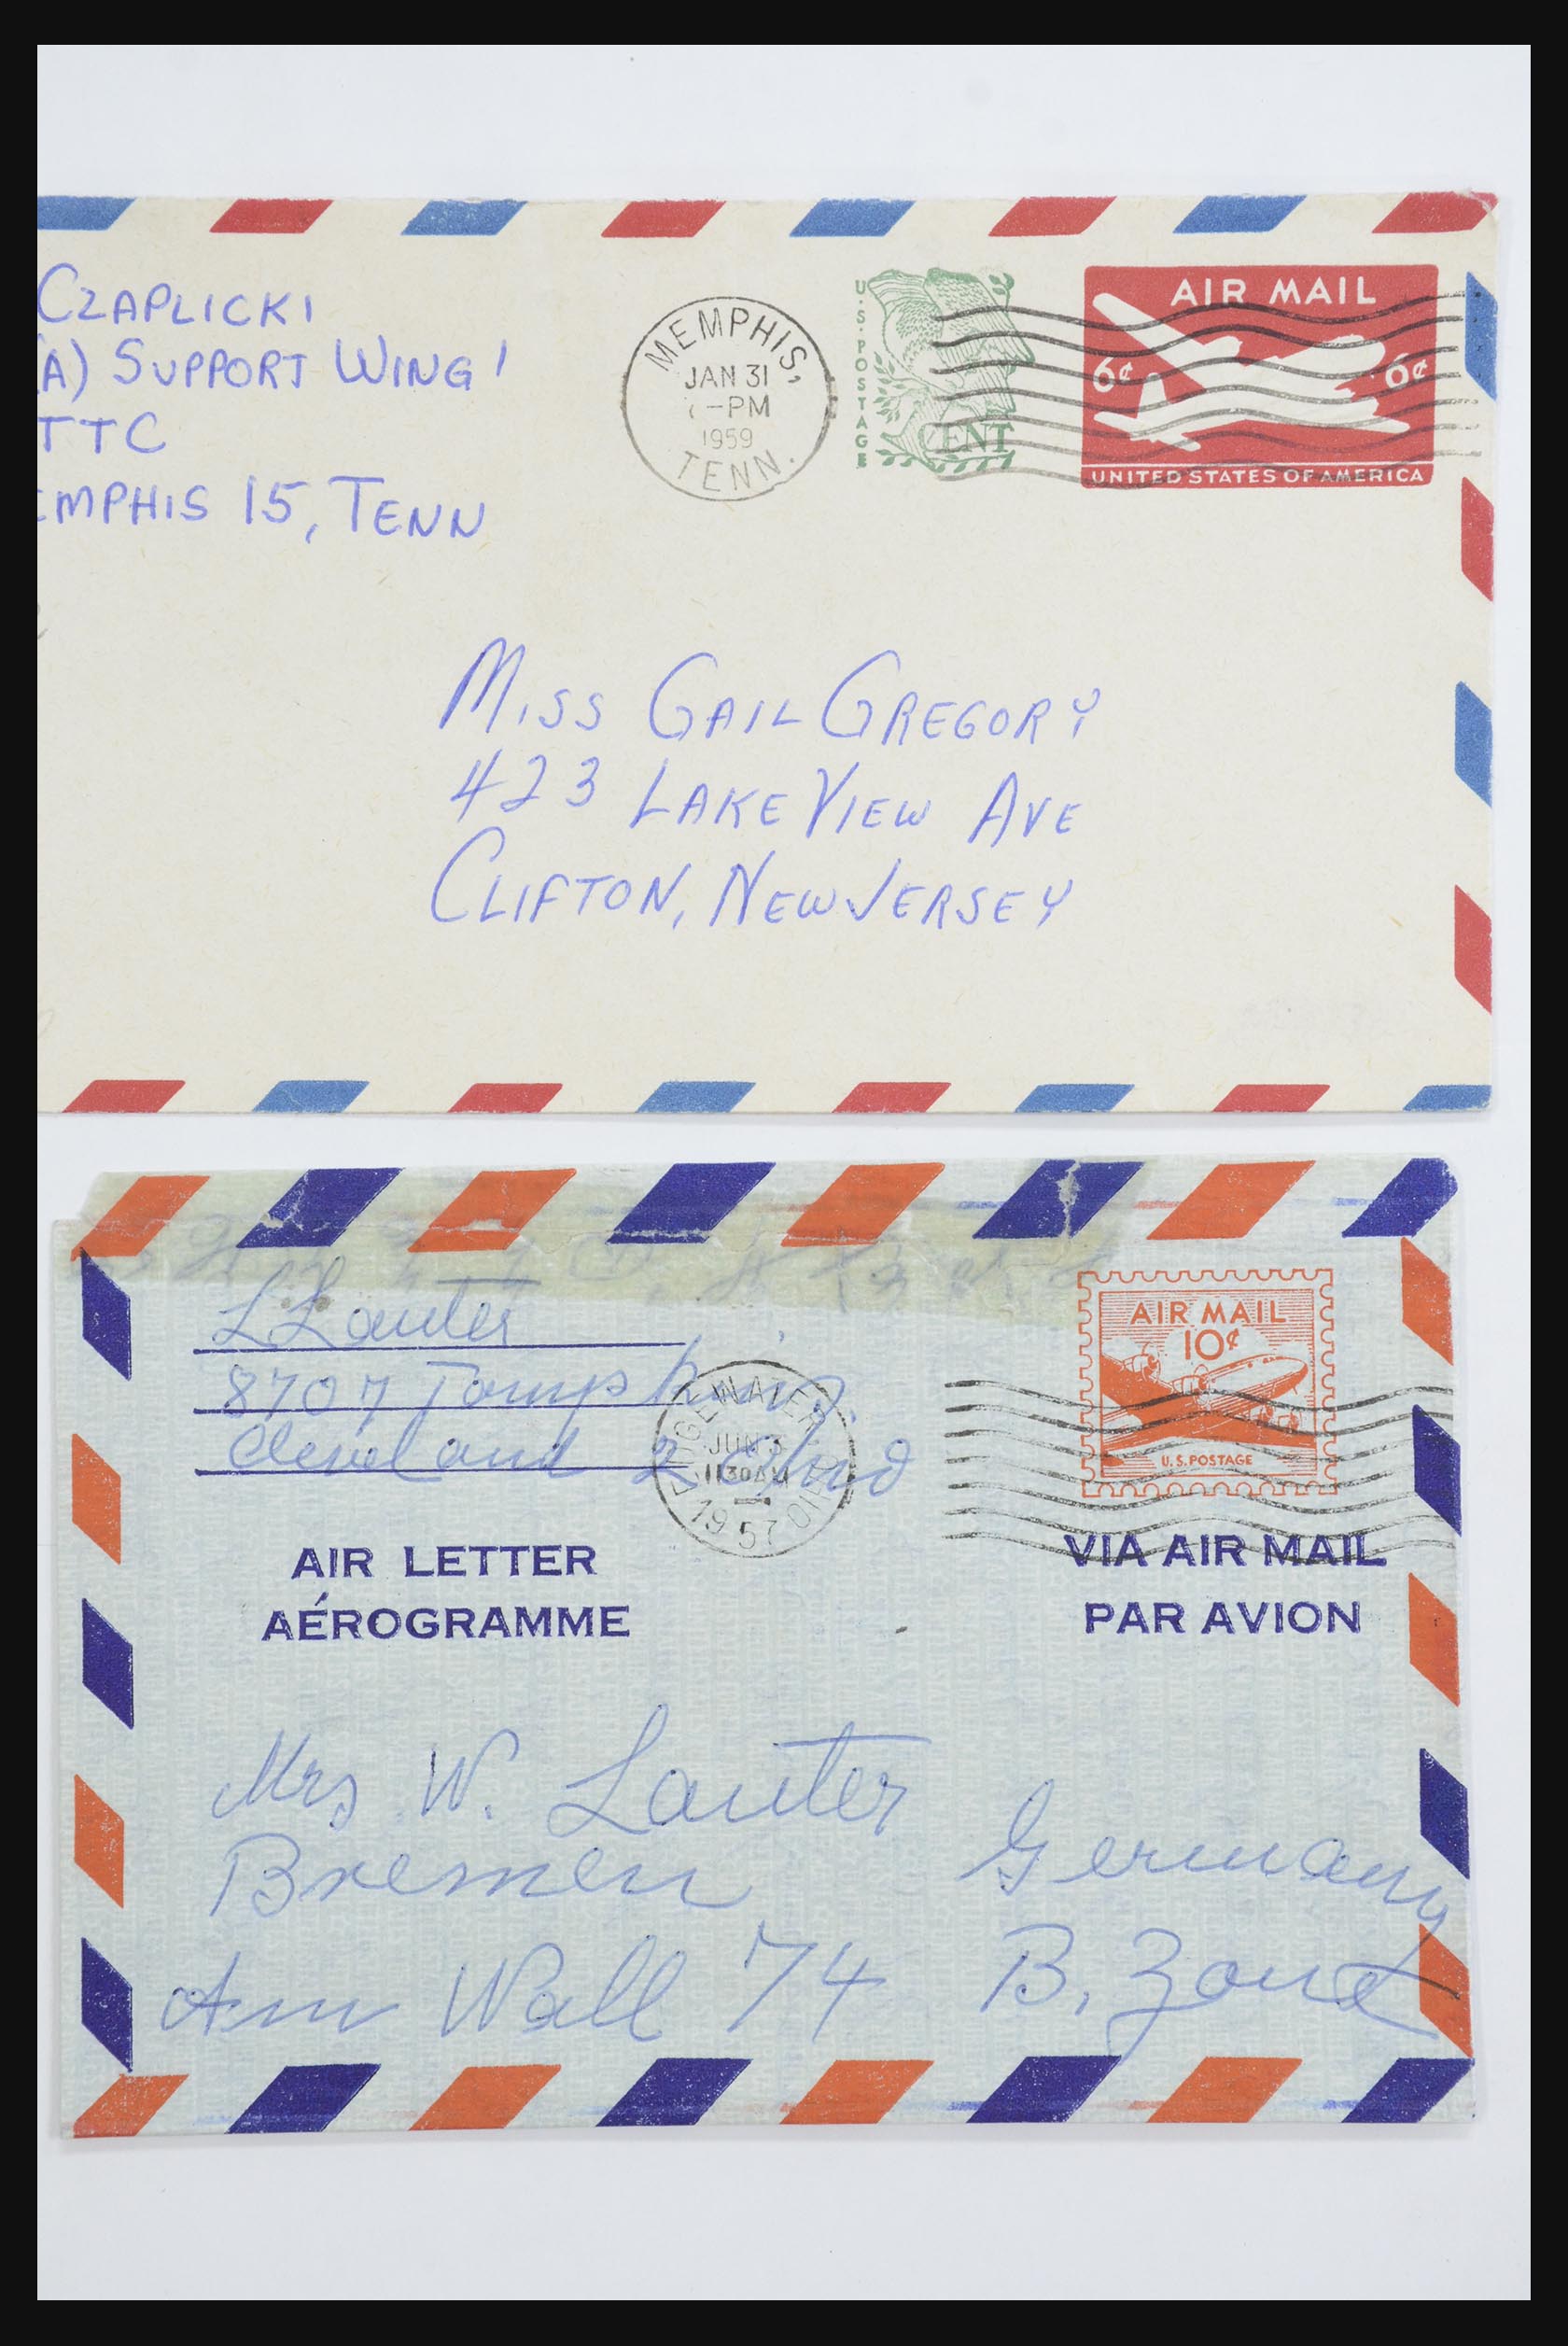 CZAPLICKI
A) SUPPORT WING
TTC
EMPHIS 15, TENN
MEMPHIS,
JAN 31
-PM
1959
TENN.
U.S. POSTAGE
CENT
AIR MAIL
6¢ 6¢
UNITED STATES OF AMERICA
MISS GAIL GREGORY
423 LAKE VIEW AVE
CLIFTON, NEW JERSEY
L Lauter
8707 Tompkins
Cleveland 2 Ohio
EDGEWATER
JUN 3
1130 AM
1957
OHIO
AIR MAIL
10¢
U.S. POSTAGE
AIR LETTER
AÉROGRAMME
VIA AIR MAIL
PAR AVION
Mrs W. Lauter
Bremen Germany
Am Wall 74 B. Zone